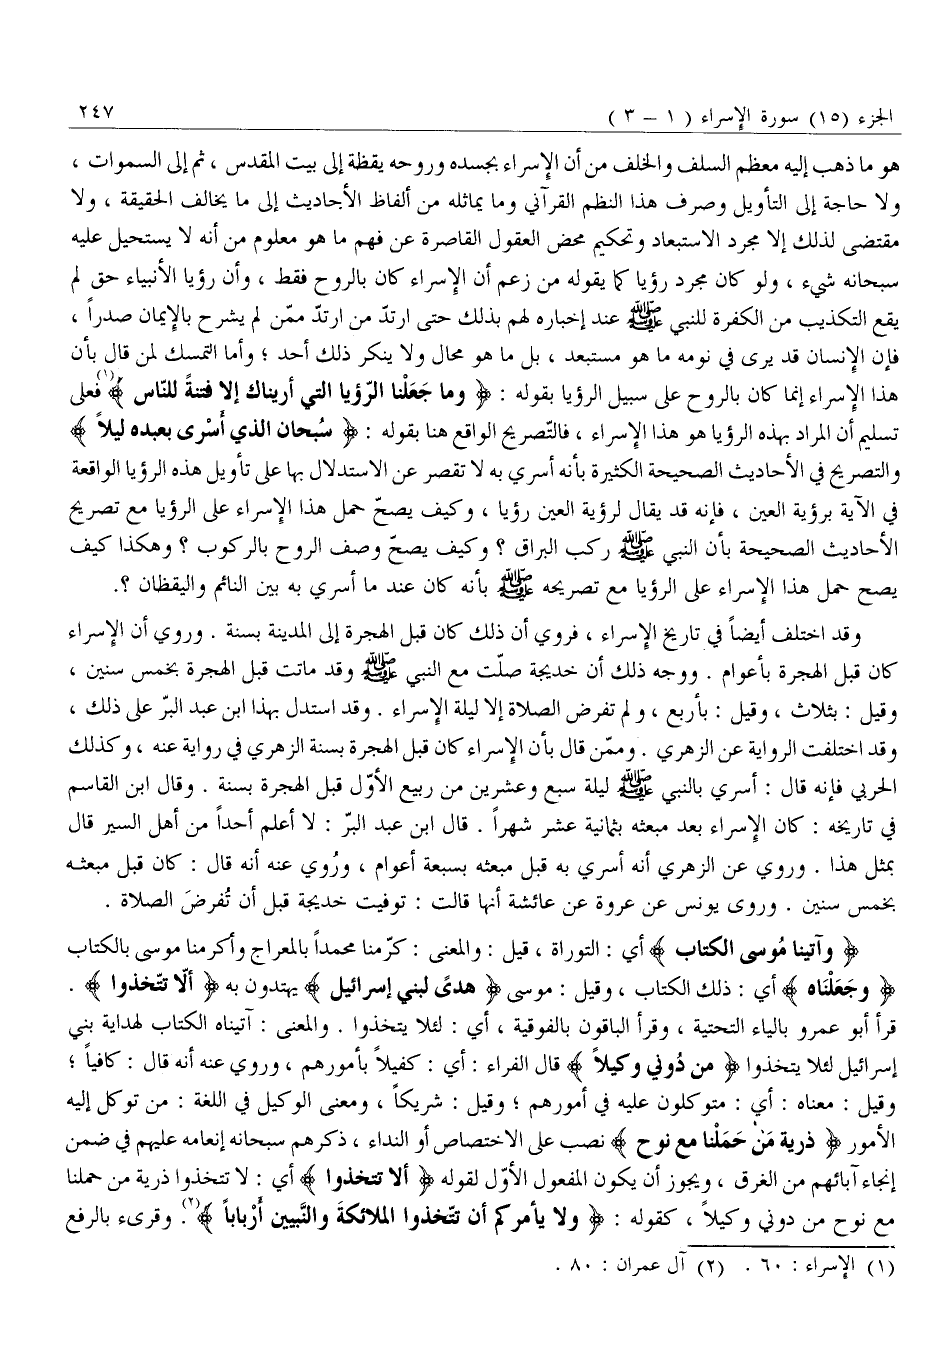 الجزء (١٥) سورة الإسراء ( ١ – ٣ ) ٢٤٧
هو ما ذهب إليه معظم السلف والخلف من أن الإسراء بجسده وروحه يقظة إلى بيت المقدس ، ثم إلى السموات ،
ولا حاجة إلى التأويل وصرف هذا النظم القرآني وما يماثله من ألفاظ الأحاديث إلى ما يخالف الحقيقة ، ولا
مقتضى لذلك إلا مجرد الاستبعاد وتحكيم محض العقول القاصرة عن فهم ما هو معلوم من أنه لا يستحيل عليه
سبحانه شيء ، ولو كان مجرد رؤيا كما يقوله من زعم أن الإسراء كان بالروح فقط ، وأن رؤيا الأنبياء حق لم
يقع التكذيب من الكفرة للنبي ﷺ عند إخباره لهم بذلك حتى ارتدّ من ارتدّ ممّن لم يشرح بالإيمان صدراً ،
فإن الإنسان قد يرى في نومه ما هو مستبعد ، بل ما هو محال ولا ينكر ذلك أحد ؛ وأما التمسك لمن قال بأن
هذا الإسراء إنما كان بالروح على سبيل الرؤيا بقوله : ﴿ وما جَعَلْنا الرّؤيا التي أريناك إلا فتنةً للنّاس ﴾(١) فعلى
تسليم أن المراد بهذه الرؤيا هو هذا الإسراء ، فالتّصريح الواقع هنا بقوله : ﴿ سُبحان الذي أَسْرى بعبده ليلاً ﴾
والتصريح في الأحاديث الصحيحة الكثيرة بأنه أسري به لا تقصر عن الاستدلال بها على تأويل هذه الرؤيا الواقعة
في الآية برؤية العين ، فإنه قد يقال لرؤية العين رؤيا ، وكيف يصحّ حمل هذا الإسراء على الرؤيا مع تصريح
الأحاديث الصحيحة بأن النبي ﷺ ركب البراق ؟ وكيف يصحّ وصف الروح بالركوب ؟ وهكذا كيف
يصح حمل هذا الإسراء على الرؤيا مع تصريحه ﷺ بأنه كان عند ما أسري به بين النائم واليقظان ؟.
وقد اختلف أيضاً في تاريخ الإسراء ، فروي أن ذلك كان قبل الهجرة إلى المدينة بسنة . وروي أن الإسراء
كان قبل الهجرة بأعوام . ووجه ذلك أن خديجة صلّت مع النبي ﷺ وقد ماتت قبل الهجرة بخمس سنين ،
وقيل : بثلاث ، وقيل : بأربع ، ولم تفرض الصلاة إلا ليلة الإسراء . وقد استدل بهذا ابن عبد البرّ على ذلك ،
وقد اختلفت الرواية عن الزهري . وممّن قال بأن الإسراء كان قبل الهجرة بسنة الزهري في رواية عنه ، وكذلك
الحربي فإنه قال : أسري بالنبي ﷺ ليلة سبع وعشرين من ربيع الأوّل قبل الهجرة بسنة . وقال ابن القاسم
في تاريخه : كان الإسراء بعد مبعثه بثمانية عشر شهراً . قال ابن عبد البرّ : لا أعلم أحداً من أهل السير قال
بمثل هذا . وروي عن الزهري أنه أسري به قبل مبعثه بسبعة أعوام ، ورُوي عنه أنه قال : كان قبل مبعثه
بخمس سنين . وروى يونس عن عروة عن عائشة أنها قالت : توفيت خديجة قبل أن تُفرضَ الصلاة .
﴿ وآتينا مُوسى الكتاب ﴾ أي : التوراة ، قيل : والمعنى : كرّمنا محمداً بالمعراج وأكرمنا موسى بالكتاب
﴿ وجَعَلْنَاه ﴾ أي : ذلك الكتاب ، وقيل : موسى ﴿ هدىً لبني إسرائيل ﴾ يهتدون به ﴿ ألّا تتّخذوا ﴾ .
قرأ أبو عمرو بالياء التحتية ، وقرأ الباقون بالفوقية ، أي : لئلا يتخذوا . والمعنى : آتيناه الكتاب لهداية بني
إسرائيل لئلا يتخذوا ﴿ من دُوني وكيلاً ﴾ قال الفراء : أي : كفيلاً بأمورهم ، وروي عنه أنه قال : كافياً ؛
وقيل : معناه : أي : متوكلون عليه في أمورهم ؛ وقيل : شريكاً ، ومعنى الوكيل في اللغة : من توكل إليه
الأمور ﴿ ذرية مَنْ حَمَلْنا مع نوح ﴾ نصب على الاختصاص أو النداء ، ذكرهم سبحانه إنعامه عليهم في ضمن
إنجاء آبائهم من الغرق ، ويجوز أن يكون المفعول الأوّل لقوله ﴿ ألا تتخذوا ﴾ أي : لا تتخذوا ذرية من حملنا
مع نوح من دوني وكيلاً ، كقوله : ﴿ ولا يأمركم أن تتّخذوا الملائكةَ والنَّبيين أَرْباباً ﴾(٢). وقرىء بالرفع
(١) الإسراء : ٦٠ . (٢) آل عمران : ٨٠ .